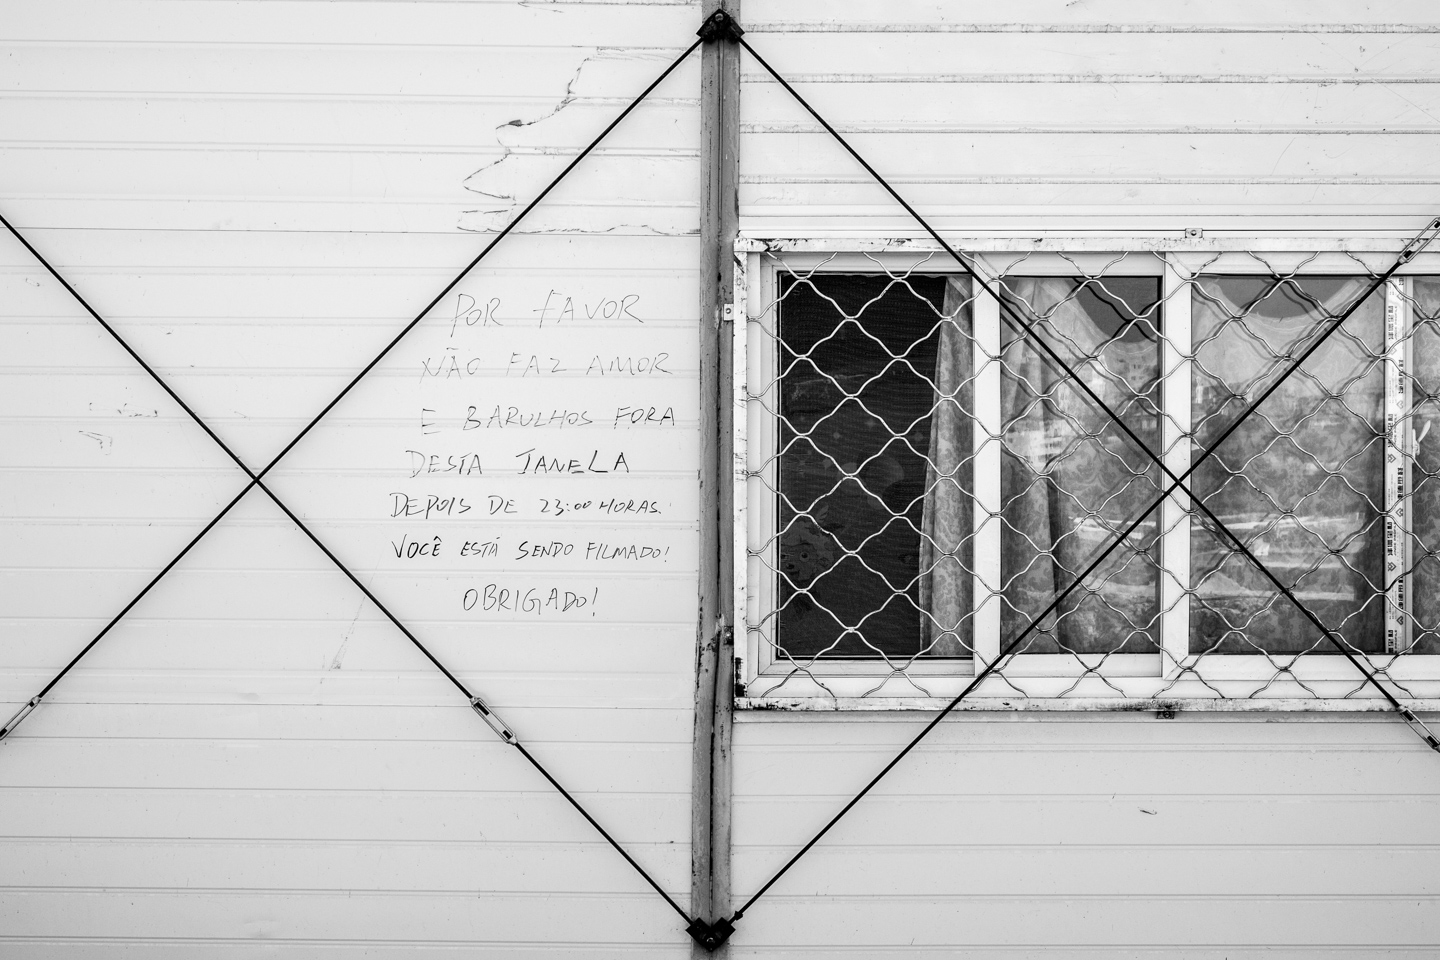 POR FAVOR
NÃO FAZ AMOR
E BARULHOS FORA
DESTA JANELA
DEPOIS DE 23:00 HORAS.
VOCÊ ESTÁ SENDO FILMADO!
OBRIGADO!